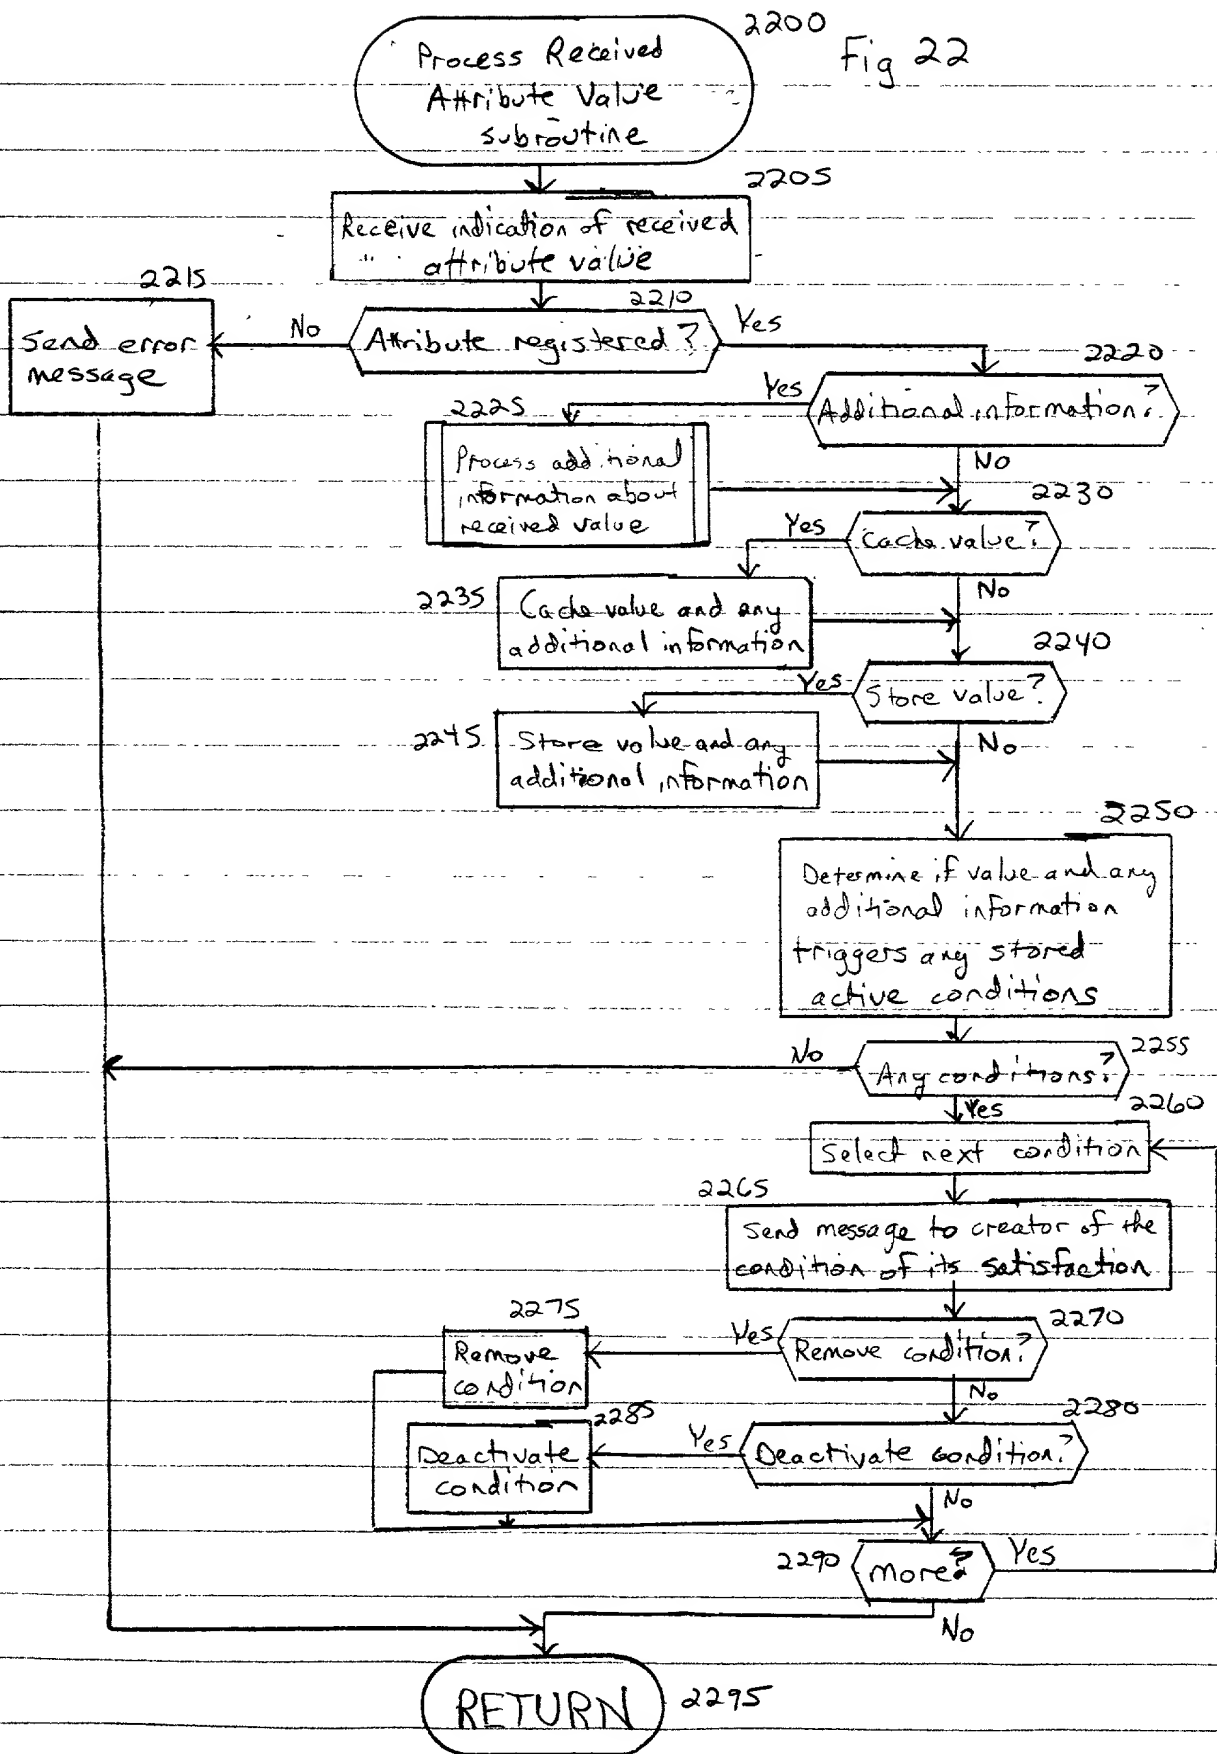 2200
Fig 22
Process Received
Attribute Value
subroutine
2205
Receive indication of received
attribute value
2215
2210
Send error
message
No
Attribute registered?
Yes
2220
Yes
Additional information?
2225
Process additional
information about
received value
No
2230
Yes
Cache value?
2235
Cache value and any
additional information
No
2240
Yes
Store value?
2245
Store value and any
additional information
No
2250
Determine if value and any
additional information
triggers any stored
active conditions
No
2255
Any conditions?
Yes
2260
Select next condition
2265
Send message to creator of the
condition of its satisfaction
2275
2270
Remove
condition
Yes
Remove condition?
No
2285
2280
Deactivate
condition
Yes
Deactivate condition?
No
2290
more?
Yes
No
RETURN
2295